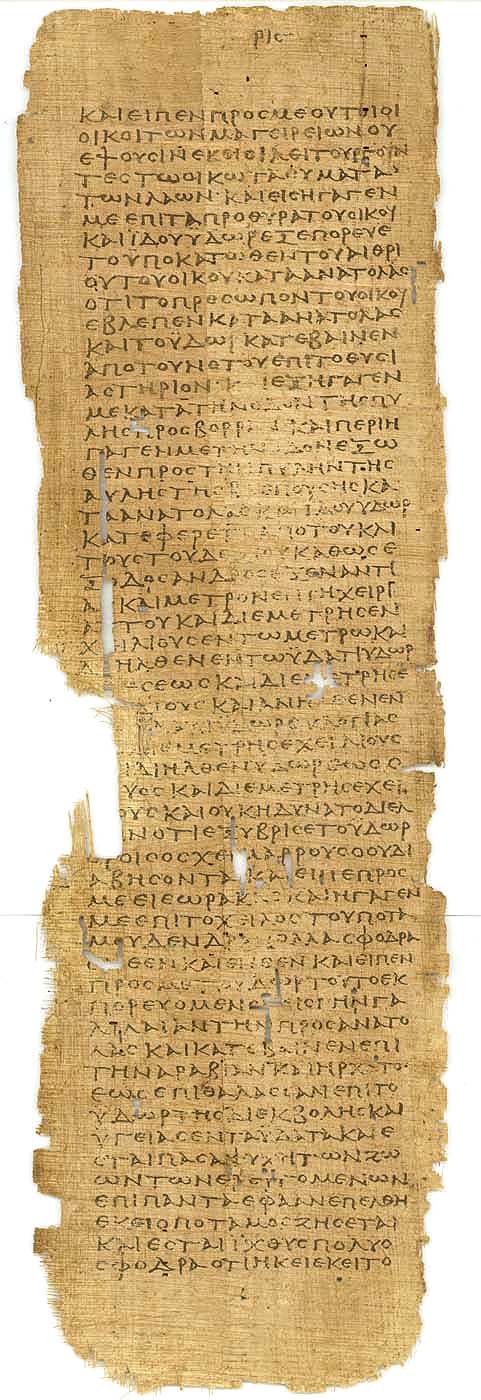 ΡΙϚ
ΚΑΙ ΕΙΠΕΝ ΠΡΟΣ ΜΕ ΟΥΤΟΙ ΟΙ
ΟΙΚΟΙ ΤΩΝ ΜΑΓΕΙΡΕΙΩΝ ΟΥ
ΕΨΟΥΣΙΝ ΕΚΕΙ ΟΙ ΛΕΙΤΟΥΡΓΟΥΝ
ΤΕΣ ΤΩ ΟΙΚΩ ΤΑ ΘΥΜΑΤΑ
ΤΩΝ ΛΑΩΝ ΚΑΙ ΕΙΣΗΓΑΓΕΝ
ΜΕ ΕΠΙ ΤΑ ΠΡΟΘΥΡΑ ΤΟΥ ΟΙΚΟΥ
ΚΑΙ ΪΔΟΥ ΥΔΩΡ ΕΞΕΠΟΡΕΥΕ
ΤΟ ΥΠΟΚΑΤΩΘΕΝ ΤΟΥ ΑΙΘΡΙ
ΟΥ ΤΟΥ ΟΙΚΟΥ ΚΑΤΑ ΑΝΑΤΟΛΑΣ
ΟΤΙ ΤΟ ΠΡΟΣΩΠΟΝ ΤΟΥ ΟΙΚΟΥ
ΕΒΛΕΠΕΝ ΚΑΤΑ ΑΝΑΤΟΛΑΣ
ΚΑΙ ΤΟ ΥΔΩΡ ΚΑΤΕΒΑΙΝΕΝ
ΑΠΟ ΤΟΥ ΝΟΤΟΥ ΕΠΙ ΤΟ ΘΥΣΙ
ΑΣΤΗΡΙΟΝ ΕΞΗΓΑΓΕΝ
ΜΕ ΚΑΤΑ ΤΗΝ ΟΔΟΝ ΤΗΣ ΠΥ
ΛΗΣ ΠΡΟΣ ΒΟΡΡΑΝ ΚΑΙ ΠΕΡΙΗ
ΓΑΓΕΝ ΜΕ ΤΗΝ ΟΔΟΝ ΕΞΩ
ΘΕΝ ΠΡΟΣ ΤΗΝ ΠΥΛΗΝ ΤΗΣ
ΑΥΛΗΣ ΤΗΣ ΒΛΕΠΟΥΣΗΣ ΚΑ
ΤΑ ΑΝΑΤΟΛΑΣ ΚΑΙ ΪΔΟΥ ΥΔΩΡ
ΚΑΤΕΦΕΡΕΤΟ ΑΠΟ ΤΟΥ ΚΛΙ
ΤΟΥΣ ΤΟΥ ΔΕΞΙΟΥ ΚΑΘΩΣ Ε
ΞΟΔΟΣ ΑΝΔΡΟΣ ΕΞ ΕΝΑΝΤΙ
ΑΣ ΚΑΙ ΜΕΤΡΟΝ ΕΝ ΤΗ ΧΕΙΡΙ
ΑΥΤΟΥ ΚΑΙ ΔΙΕΜΕΤΡΗΣΕΝ
ΧΙΛΙΟΥΣ ΕΝ ΤΩ ΜΕΤΡΩ ΚΑΙ
ΔΙΗΛΘΕΝ ΕΝ ΤΩ ΥΔΑΤΙ ΥΔΩΡ
ΣΕΩΣ ΚΑΙ ΔΙΕΜΕΤΡΗΣΕ
ΚΑΙ ΔΙΗΛΘΕΝ ΕΝ
ΥΔΩΡ
ΔΙΕΜΕΤΡΗΣΕ ΧΕΙΛΙΟΥΣ
ΚΑΙ ΔΙΗΛΘΕΝ ΥΔΩΡ ΕΩΣ Ο
ΚΑΙ ΔΙΕΜΕΤΡΗΣΕ ΧΕΙ
ΛΙΟΥΣ ΚΑΙ ΟΥΚ ΗΔΥΝΑΤΟ ΔΙΕΛ
ΘΕΙΝ ΟΤΙ ΕΞΥΒΡΙΣΕ ΤΟ ΥΔΩΡ
ΧΕΙΜΑΡΡΟΥΣ Ο ΟΥ ΔΙ
ΑΒΗΣΟΝΤΑΙ ΚΑΙ ΕΙΠΕ ΠΡΟΣ
ΜΕ ΕΙ ΕΩΡΑΚΑΣ ΚΑΙ ΗΓΑΓΕΝ
ΜΕ ΕΠΙ ΤΟ ΧΕΙΛΟΣ ΤΟΥ ΠΟΤΑ
ΜΟΥ ΔΕΝΔΡΑ ΠΟΛΛΑ ΣΦΟΔΡΑ
ΕΝΘΕΝ ΚΑΙ ΕΝΘΕΝ ΚΑΙ ΕΙΠΕΝ
ΠΡΟΣ ΜΕ ΤΟ ΥΔΩΡ ΤΟΥΤΟ ΕΚ
ΠΟΡΕΥΟΜΕΝΟΝ ΕΙΣ ΤΗΝ ΓΑ
ΛΙΛΑΙΑΝ ΤΗΝ ΠΡΟΣ ΑΝΑΤΟ
ΛΑΣ ΚΑΙ ΚΑΤΕΒΑΙΝΕΝ ΕΠΙ
ΓΗΝ ΑΡΑΒΙΑΝ ΚΑΙ ΗΡΧΕΤΟ
ΕΩΣ ΕΠΙ ΘΑΛΑΣΣΑΝ ΕΠΙ ΤΟ
ΥΔΩΡ ΤΗΣ ΔΙΕΚΒΟΛΗΣ ΚΑΙ
ΥΓΕΙΑΣΕΝ ΤΑ ΥΔΑΤΑ ΚΑΙ Ε
ΣΤΑΙ ΠΑΣΑ ΨΥΧΗ ΤΩΝ ΖΩ
ΩΝ ΤΩΝ
ΕΠΙ ΠΑΝΤΑ ΕΦ Α ΑΝ ΕΠΕΛΘΗ
ΕΚΕΙ Ο ΠΟΤΑΜΟΣ ΖΗΣΕΤΑΙ
ΚΑΙ ΕΣΤΑΙ ΙΧΘΥΣ ΠΟΛΥΣ
ΣΦΟΔΡΑ ΟΤΙ ΗΚΕΙ ΕΚΕΙ ΤΟ